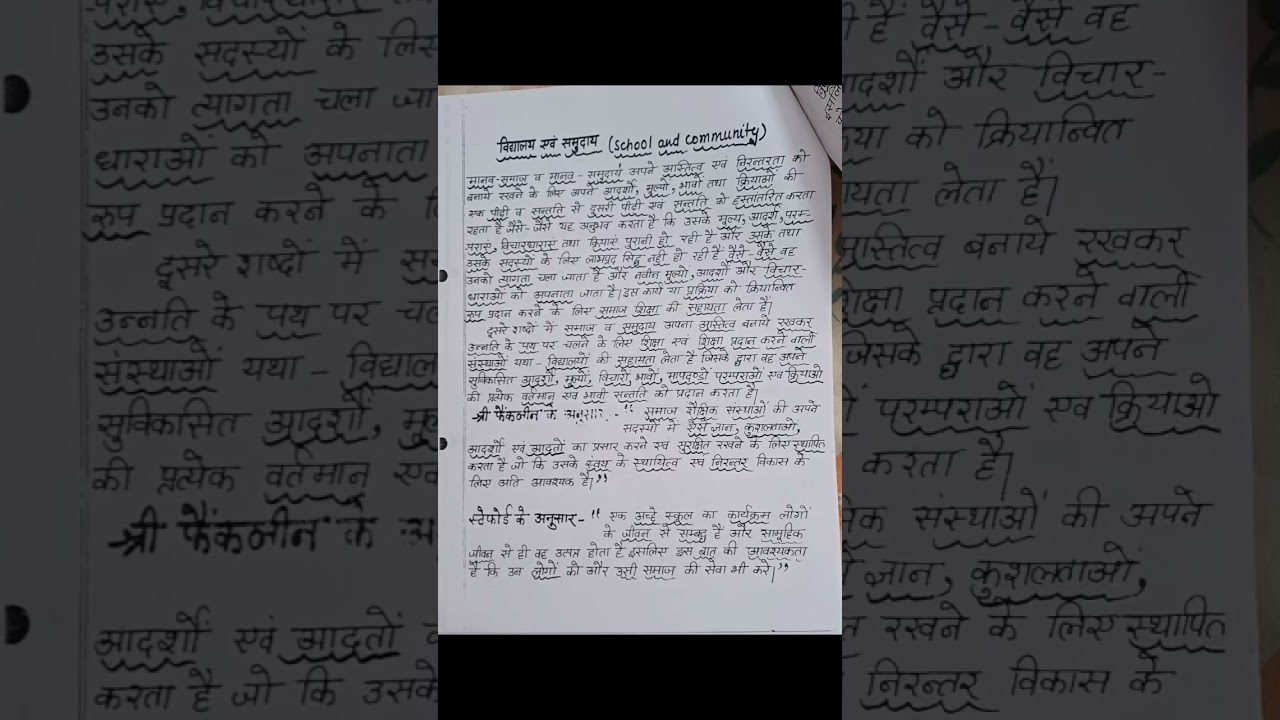 विद्यालय एवं समुदाय (School and community)
मानव-समाज व मानव-समुदाय अपने अस्तित्व एवं निरन्तरता को
बनाये रखने के लिए अपने आदर्शों, मूल्यों, भावों तथा क्रियाओं की
एक पीढ़ी व सन्तति से दुसरी पीढी एवं सन्तति को हस्तांतरित करता
रहता है जैसे-जैसे यह अनुभव करता है कि उसके मूल्य, आदर्श, परम्-
पराएं, विचारधाराएं तथा क्रियाएं पुरानी हो रही है और उसके तथा
उसके सदस्यों के लिए लाभप्रद सिद्ध नही हो रही हैं वैसे-वैसे वह
उनको त्यागता चला जाता है और नवीन मूल्यो, आदर्शों और विचार-
धाराओं को अपनाता जाता है। इस कार्य या प्रक्रिया को क्रियान्वित
रूप प्रदान करने के लिए समाज शिक्षा की सहायता लेता है।
दूसरे शब्दों में समाज व समुदाय अपना अस्तित्व बनाये रखकर
उन्नति के पथ पर चलने के लिए शिक्षा एवं शिक्षा प्रदान करने वाली
संस्थाओं यथा-विद्यालयों की सहायता लेता है जिसके द्वारा वह अपने
सुविकसित आदर्शों, मूल्यों, विचारों, भावों, मापदण्डों परम्पराओं एवं क्रियाओ
की प्रत्येक वर्तमान एवं भावी सन्तति को प्रदान करता है।
श्री फैंकलीन के अनुसार:- “समाज शैक्षिक संस्थाओं की अपने
सदस्यों में ऐसे ज्ञान, कुशलताओ,
आदर्शों एवं आदतों का प्रसार करने एवं सुरक्षित रखने के लिए स्थापित
करता है जो कि उसके स्वयं के स्थायित्व एवं निरन्तर विकास के
लिए अति आवश्यक है।”
स्टेफोर्ड के अनुसार- “एक अच्छे स्कूल का कार्यक्रम लोगों
के जीवन से सम्बद्ध है और सामूहिक
जीवन से ही वह उत्पन्न होता है इसलिए इस बात की आवश्यकता
है कि उन लोगों की और उसी समाज की सेवा भी करे।”